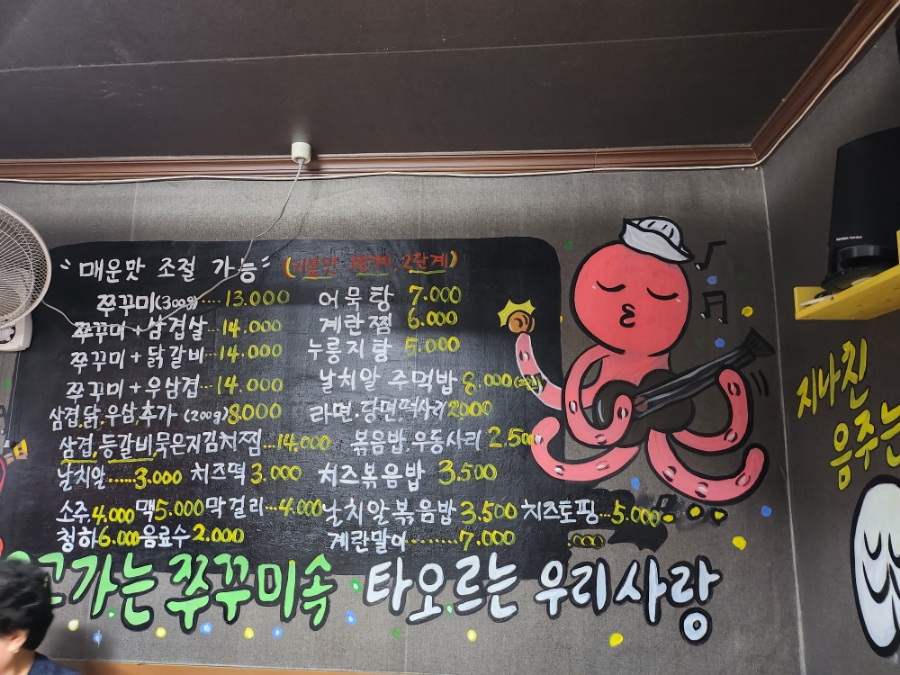 "매운맛 조절 가능" (기본맛, 1단계, 2단계)
쭈꾸미(300g)....13.000
쭈꾸미+삼겹살...14.000
쭈꾸미+닭갈비...14.000
쭈꾸미+우삼겹...14.000
삼겹.닭.우삼.추가 (200g)8000
삼겹.등갈비묵은지김치찜...14.000
날치알.....3.000 치즈떡 3.000
소주4.000 맥5.000막걸리...4.000
청하6.000음료수2.000
어묵탕 7.000
계란찜 6.000
누룽지탕 5.000
날치알 주먹밥 8.000
라면.당면.떡사리2000
볶음밥.우동사리 2.500
치즈볶음밥 3.500
날치알볶음밥3.500 치즈토핑...5.000
계란말이........7.000
가는 쭈꾸미속 타오르는 우리사랑
지나친
음주는